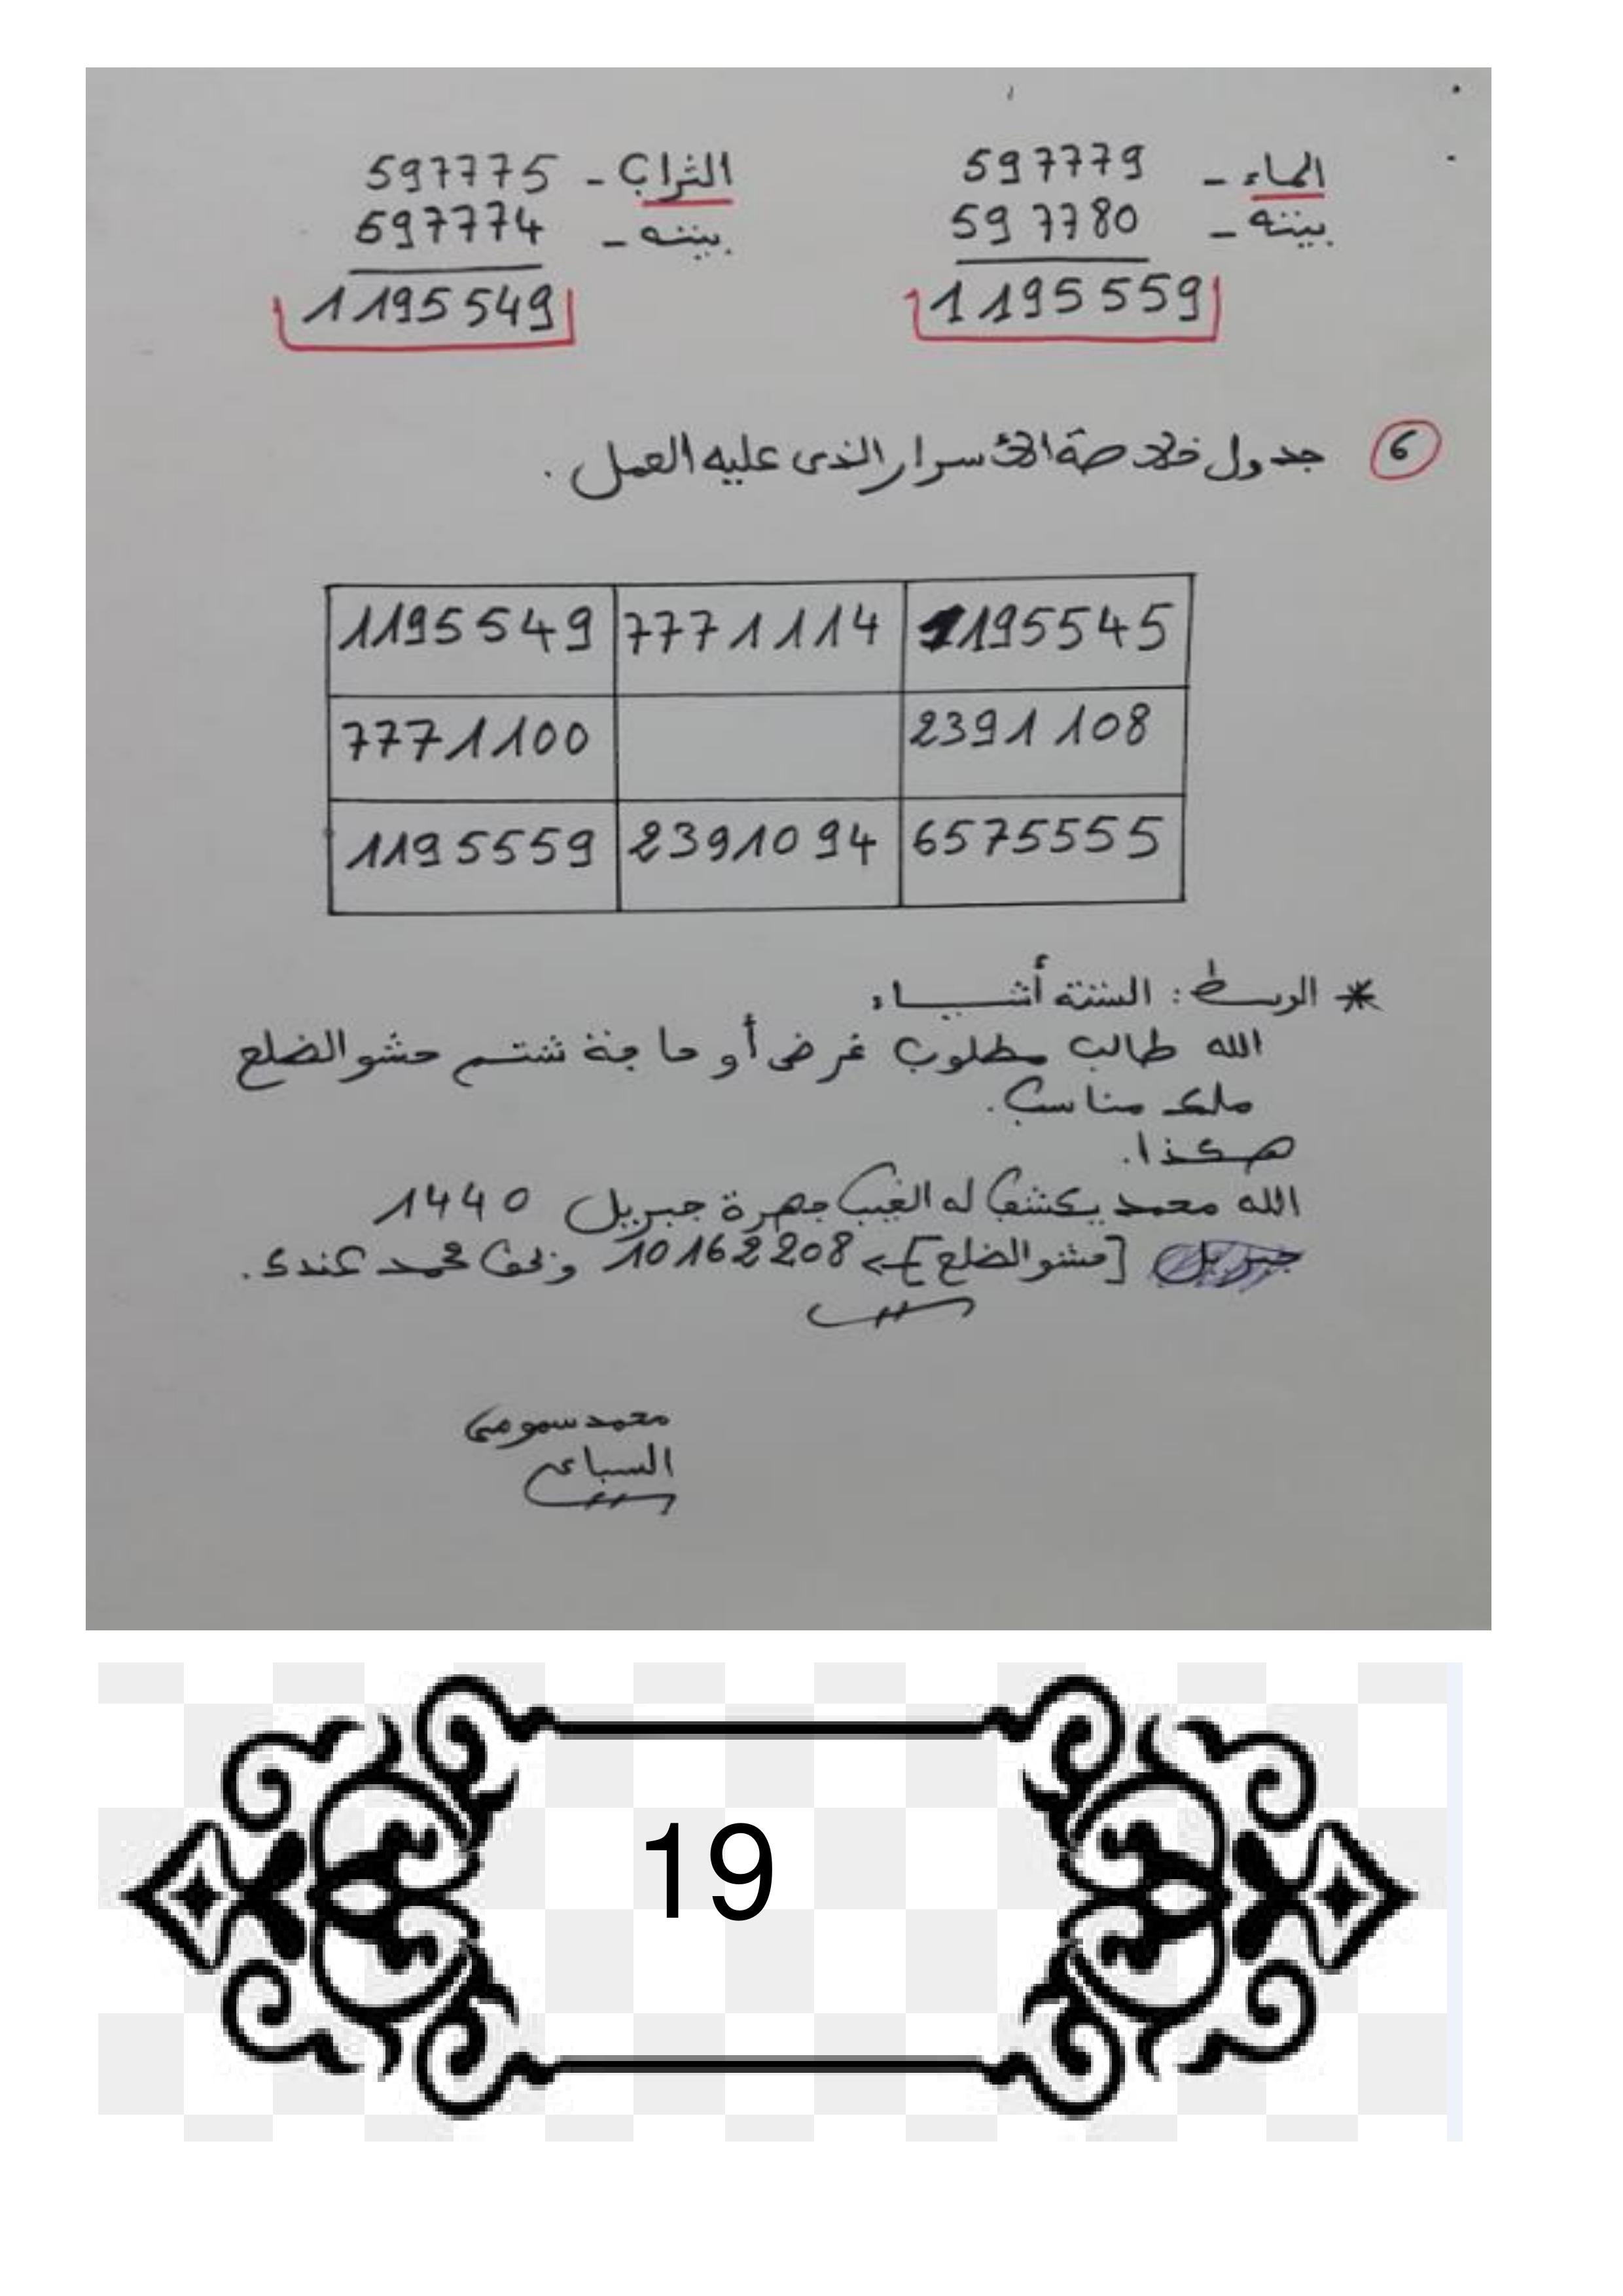 الماء - 597779
بينته - 597780
1195559
التراب - 597775
بينته - 597774
1195549
6 جدول خلاصة الأسرار الذى عليه العمل.
1195549 7771114 1195545
7771100 2391108
1195559 2391094 6575555
* الوسط: الستة أشياء
الله طالب مطلوب غرض أو حاجة شتم حشو الضلع
ملك مناسب.
هكذا.
الله محمد يكشف له الغيب جهرة جبريل 1440
[حشو الضلع] 10162208 وفق محمد عندك.
محمد
السباعي
19